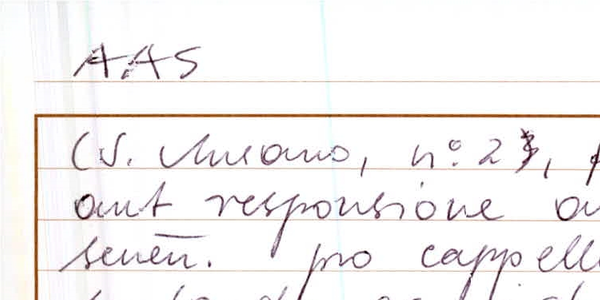 AAS
(V. Murano, n° 23,
ant responsione
senen̄. pro cappell